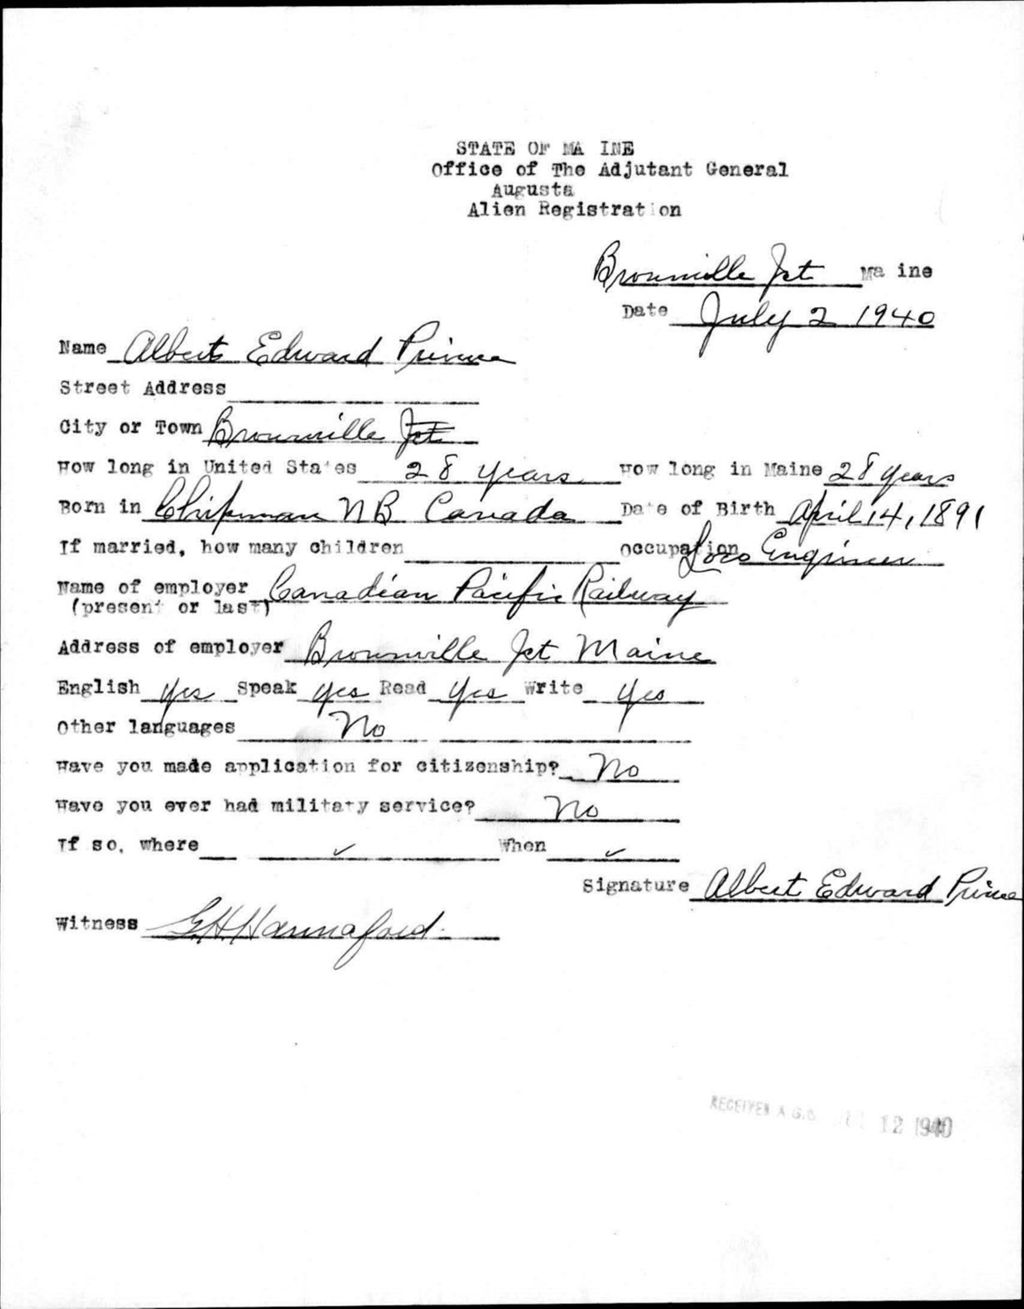 STATE OF MA INE
Office of The Adjutant General
Augusta
Alien Registration
Brownville Jct Ma ine
Date July 2 1940
Name Albert Edward Prince
Street Address
City or Town Brownville Jct
How long in United States 28 years How long in Maine 28 years
Born in Chipman NB Canada Date of Birth April 14, 1891
If married, how many children Occupation Loco Engineer
Name of employer Canadian Pacific Railway
(present or last)
Address of employer Brownville Jct Maine
English Yes Speak Yes Read Yes Write Yes
Other languages No
Have you made application for citizenship? No
Have you ever had military service? No
If so, where ✓ When ✓
Signature Albert Edward Prince
Witness G.H. Hannaford.
RECEIVED A.G.O. 12 1940